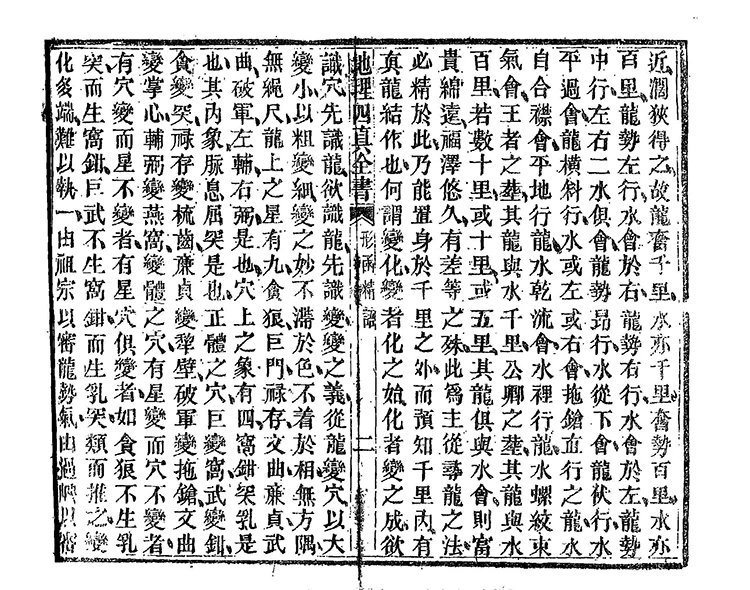 近濶狹得之故龍奮千里水亦千里奮勢百里水亦
百里龍勢左行水會於右龍勢右行水會於左龍勢
中行左右二水俱會龍勢昂行水從下會龍伏行水
平過會龍橫斜行水或左或右會拖鎗直行之龍水
自合襟會平地行龍水乾流會水裡行龍水螺紋東
氣會王者之塟其龍與水千里公卿之塟其龍與水
百里若數十里或十里或五里其龍俱與水會則富
貴綿遠福澤悠久有差等之殊此爲主從尋龍之法
必精於此乃能置身於千里之外而預知千里內有
真龍結作也何謂變化變者化之始化者變之成欲
地理四真全書 形 精 二
識穴先識龍欲識龍先識變變之義從龍變穴以大
變小以粗變細變之妙不滯於色不着於相無方隅
無繩尺龍上之星有九貪狼巨門祿存文曲廉貞武
曲破軍左輔右弼是也穴上之象有四窩鉗突乳是
也其內象脉息屈突是也正體之穴巨變窩武變鉗
貪變突祿存變梳齒廉貞變犁壁破軍變拖鎗文曲
變掌心輔弼變燕窩變體之穴有星變而穴不變者
有穴變而星不變者有星穴俱變者如貪狼不生乳
突而生窩鉗巨武不生窩鉗而生乳突類而推之變
化多端難以執一由祖宗以審龍勢氣由過峽以審